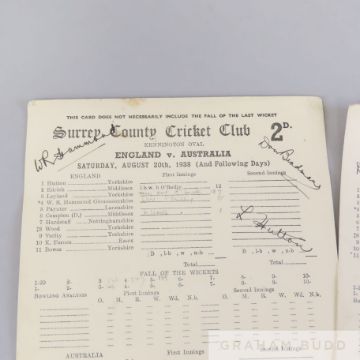 THIS CARD DOES NOT NECESSARILY INCLUDE THE FALL OF THE LAST WICKET
Surrey County Cricket Club 2D.
KENNINGTON OVAL
WR Hammond
Don Bradman
ENGLAND v. AUSTRALIA
SATURDAY, AUGUST 20th, 1938 (And Following Days)
ENGLAND First Innings Second Innings
1 Hutton Yorkshire
2 Edrich Middlesex l b w b O'Reilly 12
3 Leyland Yorkshire
*4 W. R. Hammond Gloucestershire
5 Paynter Lancashire
6 Compton (D.) Middlesex
7 Hardstaff Nottinghamshire
L Hutton
8 Wood Yorkshire
9 Verity Yorkshire
10 K. Farnes Essex
11 Bowes Yorkshire
B , l-b , w , n-b B , l-b , w , n-b
Total Total
FALL OF THE WICKETS
1-29 2- 3 4- 5- 6- 7- 8- 9- 10-
1- 2- 3- 4- 5- 6- 7- 8- 9- 10-
BOWLING ANALYSIS First Innings Second Innings
O. M. R. W. Wd. N.b. O. M. R. W. Wd. N.b.
AUSTRALIA First Innings Second Innings
GRAHAM BUDD